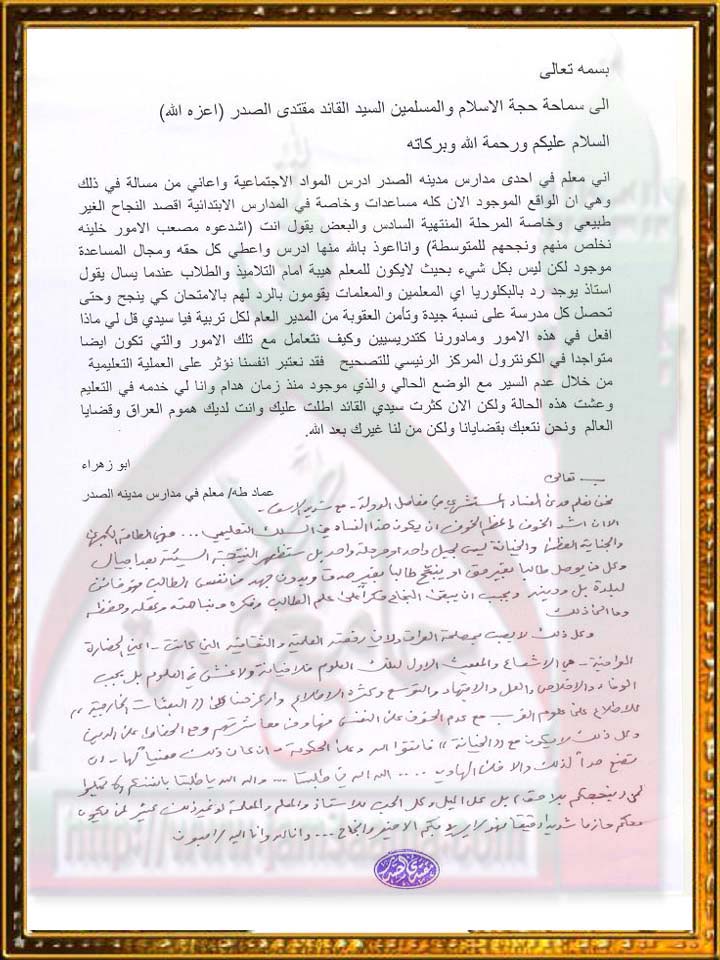 بسمه تعالى
الى سماحة حجة الاسلام والمسلمين السيد القائد مقتدى الصدر (اعزه الله)
السلام عليكم ورحمة الله وبركاته
اني معلم في احدى مدارس مدينه الصدر ادرس المواد الاجتماعية واعاني من مسالة في ذلك
وهي ان الواقع الموجود الان كله مساعدات وخاصة في المدارس الابتدائية اقصد النجاح الغير
طبيعي وخاصة المرحلة المنتهية السادس والبعض يقول انت (اشدعوه مصعب الامور خلينه
نخلص منهم ونجحهم للمتوسطة) وانااعوذ بالله منها ادرس واعطي كل حقه ومجال المساعدة
موجود لكن ليس بكل شيء بحيث لايكون للمعلم هيبة امام التلاميذ والطلاب عندما يسال يقول
استاذ يوجد رد بالبكلوريا اي المعلمين والمعلمات يقومون بالرد لهم بالامتحان كي ينجح وحتى
تحصل كل مدرسة على نسبة جيدة وتأمن العقوبة من المدير العام لكل تربية فيا سيدي قل لي ماذا
افعل في هذه الامور ومادورنا كتدريسيين وكيف نتعامل مع تلك الامور والتي تكون ايضا
متواجدا في الكونترول المركز الرئيسي للتصحيح فقد نعتبر انفسنا نؤثر على العملية التعليمية
من خلال عدم السير مع الوضع الحالي والذي موجود منذ زمان هدام وانا لي خدمه في التعليم
وعشت هذه الحالة ولكن الان كثرت سيدي القائد اطلت عليك وانت لديك هموم العراق وقضايا
العالم ونحن نتعبك بقضايانا ولكن من لنا غيرك بعد الله.
ابو زهراء
عماد طه/ معلم في مدارس مدينه الصدر
تعالى
نحن نعلم مدى الفساد المستشري في مفاصل الدولة - مع شديد الاسف -
الا ان اشد الخوف واعظم الخوف ان يكون هذا الفساد في السلك التعليمي ... فهي الطامة الكبرى
والجناية العظمى والخيانة ليس لجيل واحد او مرحلة واحد بل ستظهر النتيجة السيئة بعد اجيال
وعل من يوصل طالبا بغير حق او ينجح طالبا بغير صدق وبدون جهد من نفس الطالب فهو خائن
لبلده بل ودينه. ويجب ان يبقى النجاح حكرا على علم الطالب وفكره ونباهته وعقله وحفظه
وما الى ذلك
وكل ذلك لا يصب بمصلحة العراق ولا في رفعته العلمية والثقافية التي كانت - اعني الحضارة
العراقية - هي الاشعاع والمنبع الاول لتلك العلوم فلا خيانة ولا غش في العلوم بل يجب
الوفاء والاخلاص والعمل والاجتهاد والتوسع وكثرة الاطلاع
للاطلاع على علوم الغرب مع عدم الخوف على النفس
وكل ذلك لا يكون مع ((الخيانة)) فاتقوا الله وعلى الحكومة - ان كان ذلك
تضع حدا لذلك والا فان الهاوية .... الله الله في طلبتنا ... والله الله يا طلبتنا بانفسكم
معكم حازما شديدا دقيقا فهو لا يريد بكم الا الخير والنجاح ... وانا لله وانا اليه راجعون
مقتدى الصدر
http://www.